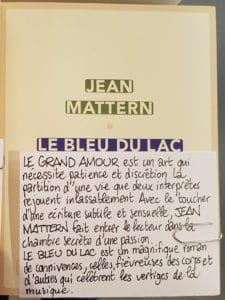 JEAN
MATTERN
LE BLEU DU LAC
LE GRAND AMOUR est un art qui
nécessite patience et discrétion. la
partition d'une vie que deux interprètes
rejouent inlassablement. Avec le toucher
d'une écriture subtile et sensuelle, JEAN
MATTERN fait entrer le lecteur dans la
chambre secrète d'une passion.
LE BLEU DU LAC est un magnifique roman
de connivences, celles, fiévreuses des corps et
d'autres qui célèbrent les vertiges de la
musique.